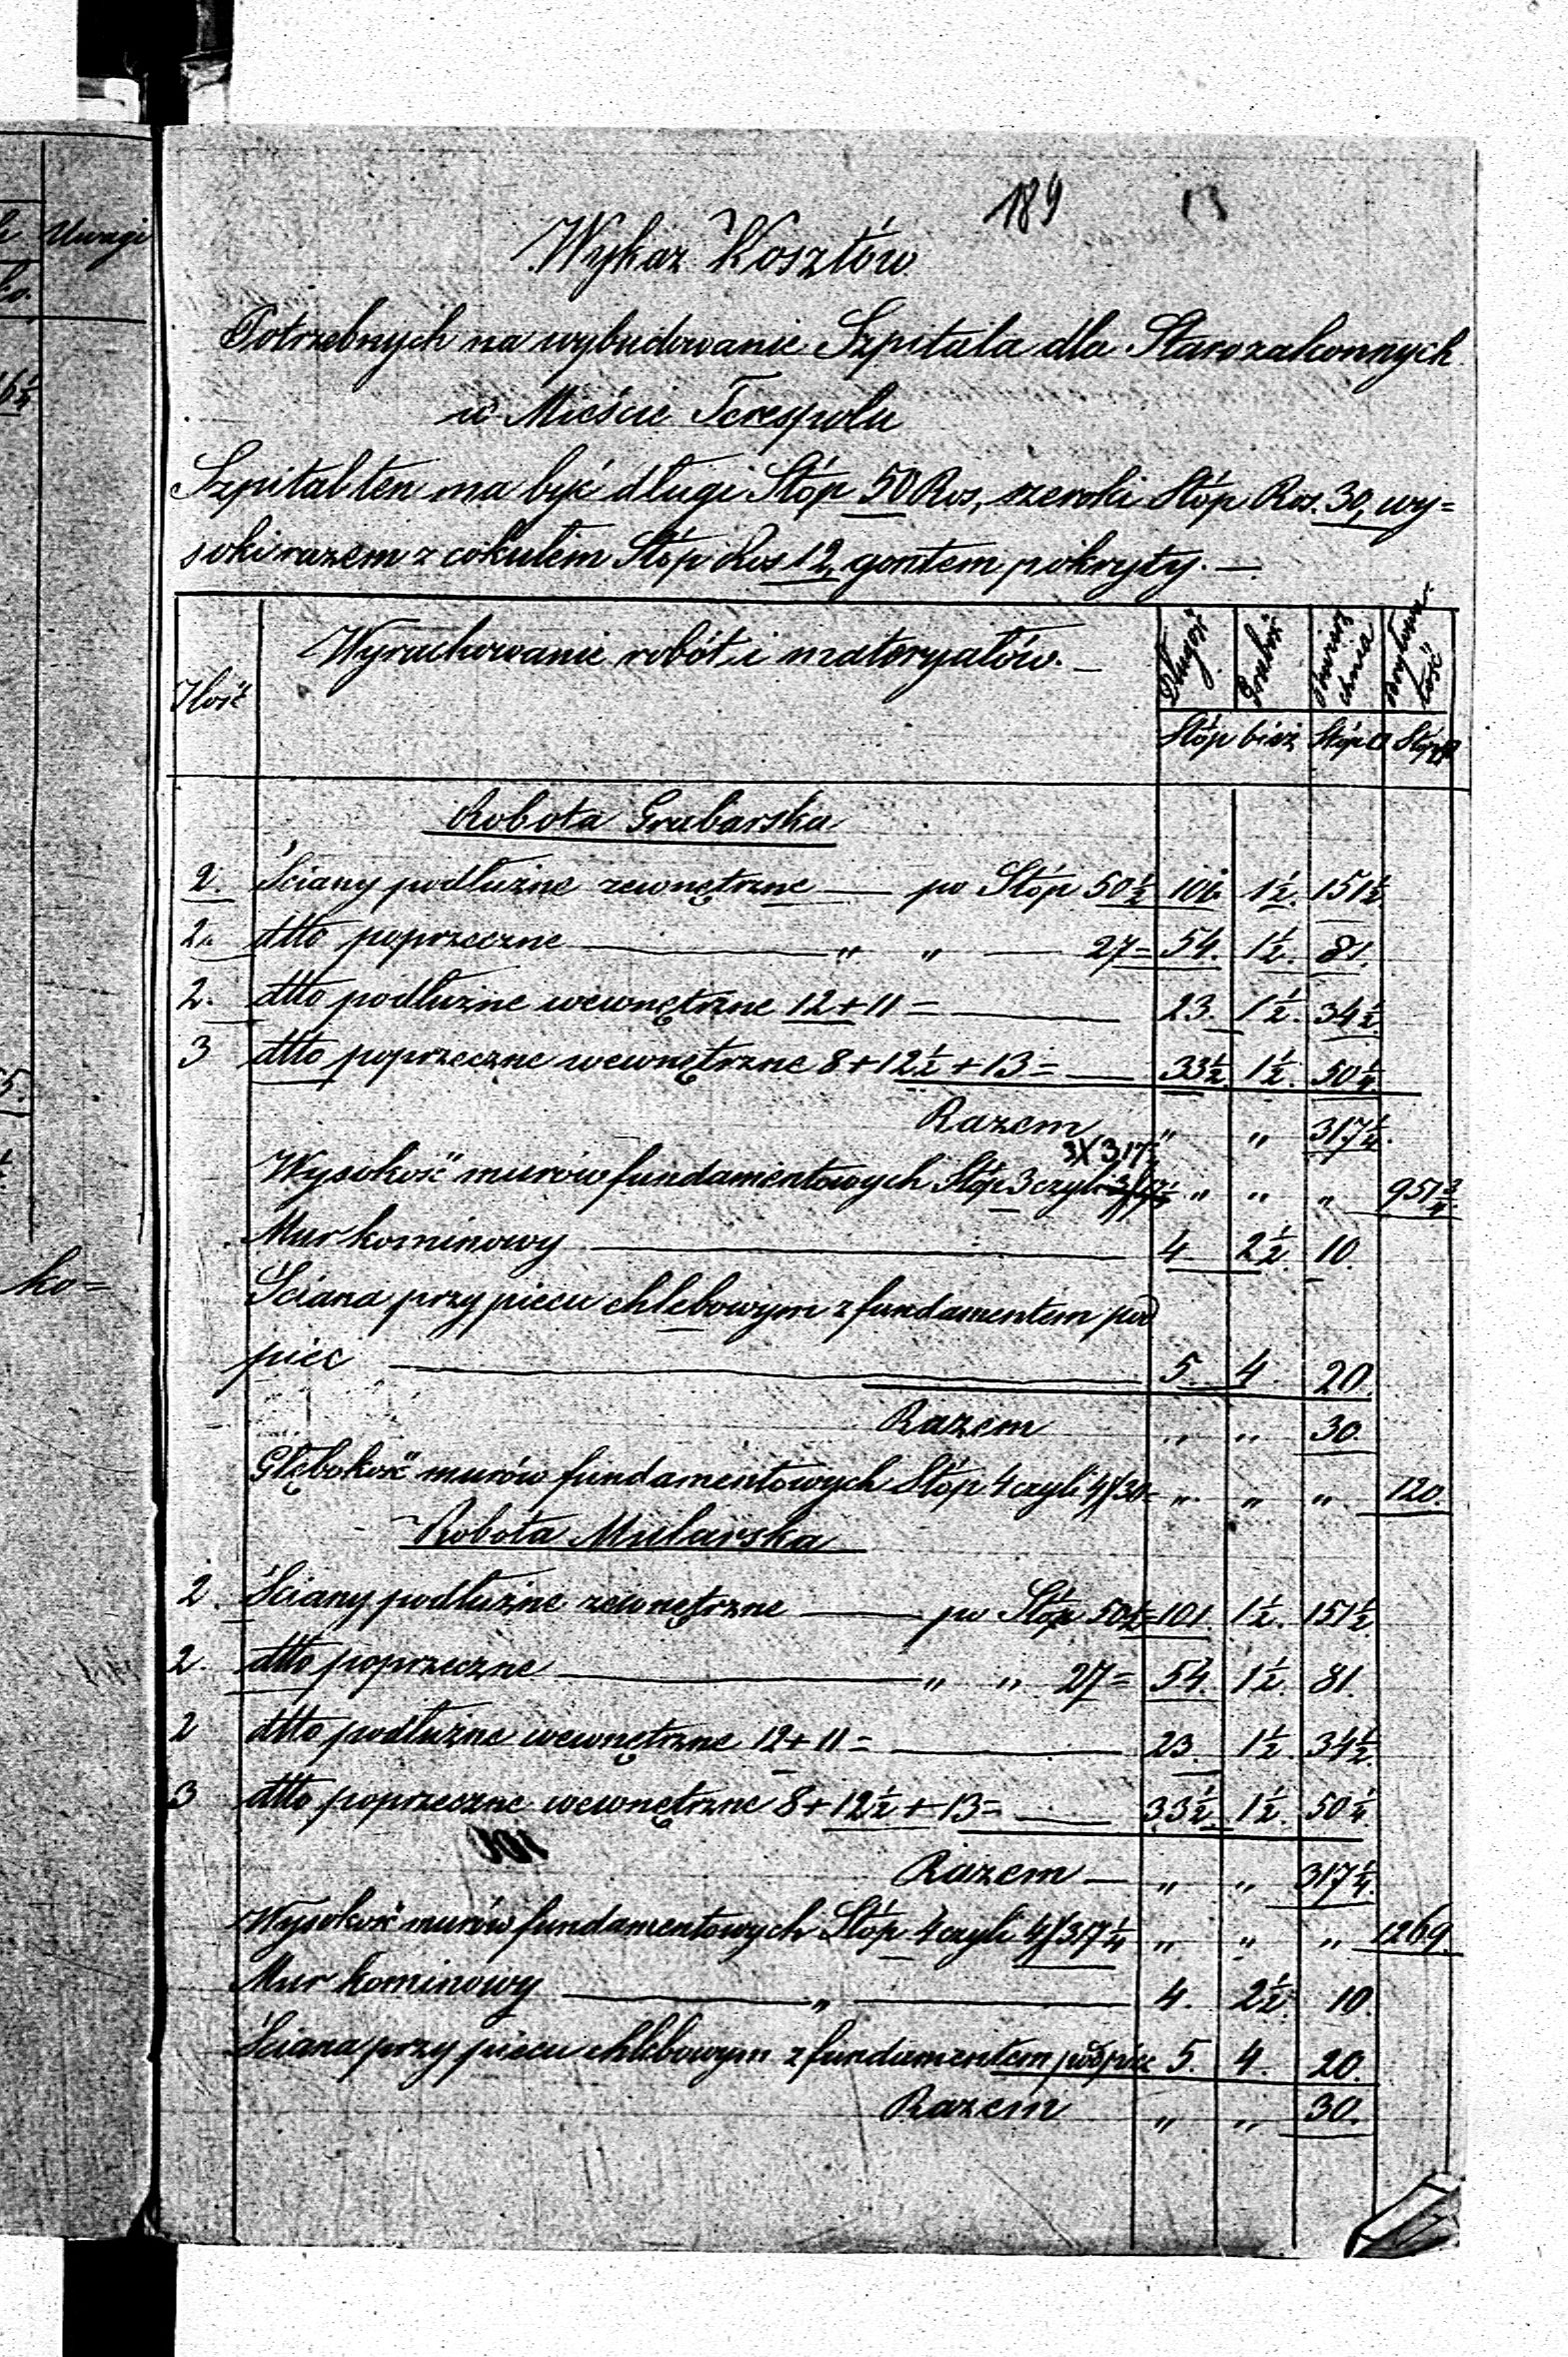 Uwagi
ko=
189
Wykaz Kosztów
Potrzebnych na wybudowanie Szpitala dla Starozakonnych
w Mieście Terespolu
Szpital ten ma być długi Stóp 50 Ros, szeroki Stóp Ros. 30, wy=
soki razem z cokulem Stóp Ros 12, gontem pokryty. —
Ilość Wyrachowanie robót i materyałów. — Długość Grubość Powierz chnia
Stóp bież Stóp □ Stóp
Robota Grabarska
2. Ściany podłużne zewnętrzne — po Stóp 50½ 101. 1½. 151½
2. dtto poprzeczne — „ „ — 27= 54. 1½. 81.
2. dtto podłużne wewnętrzne 12+11= — 23. 1½. 34½
3 dtto poprzeczne wewnętrzne 8+12½+13= — 33½ 1½. 50¼
Razem „ „ 317¼.
3X317¼
Wysokość murów fundamentowych Stóp 3 czyli „ „ „ 951¾
Mur kominowy — 4 2½. 10.
Ściana przy piecu chlebowym z fundamentem pod
piec — 5. 4 20
Razem „ „ 30
Głębokość murów fundamentowych Stóp 4 czyli 4X30= „ „ „ 120.
Robota Mularska
2. Ściany podłużne zewnętrzne — po Stóp 50½=101. 1½. 151½
2. dtto poprzeczne — „ „ 27= 54. 1½. 81.
2 dtto podłużne wewnętrzne 12+11= — 23. 1½. 34½
3 dtto poprzeczne wewnętrzne 8+12½+13= — 33½ 1½. 50¼
Razem — „ „ 317¼
Wysokość murów fundamentowych Stóp 4 czyli 4X317¼ „ „ „ 1269.
Mur kominowy — „ — 4. 2½ 10
Ściana przy piecu chlebowym z fundamentem pod piec 5. 4. 20.
Razem „ „ 30.